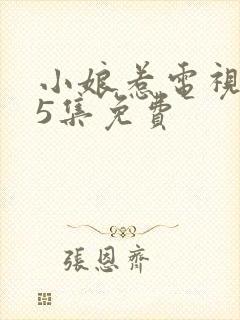 小娘惹電視
5集免費
張恩齊